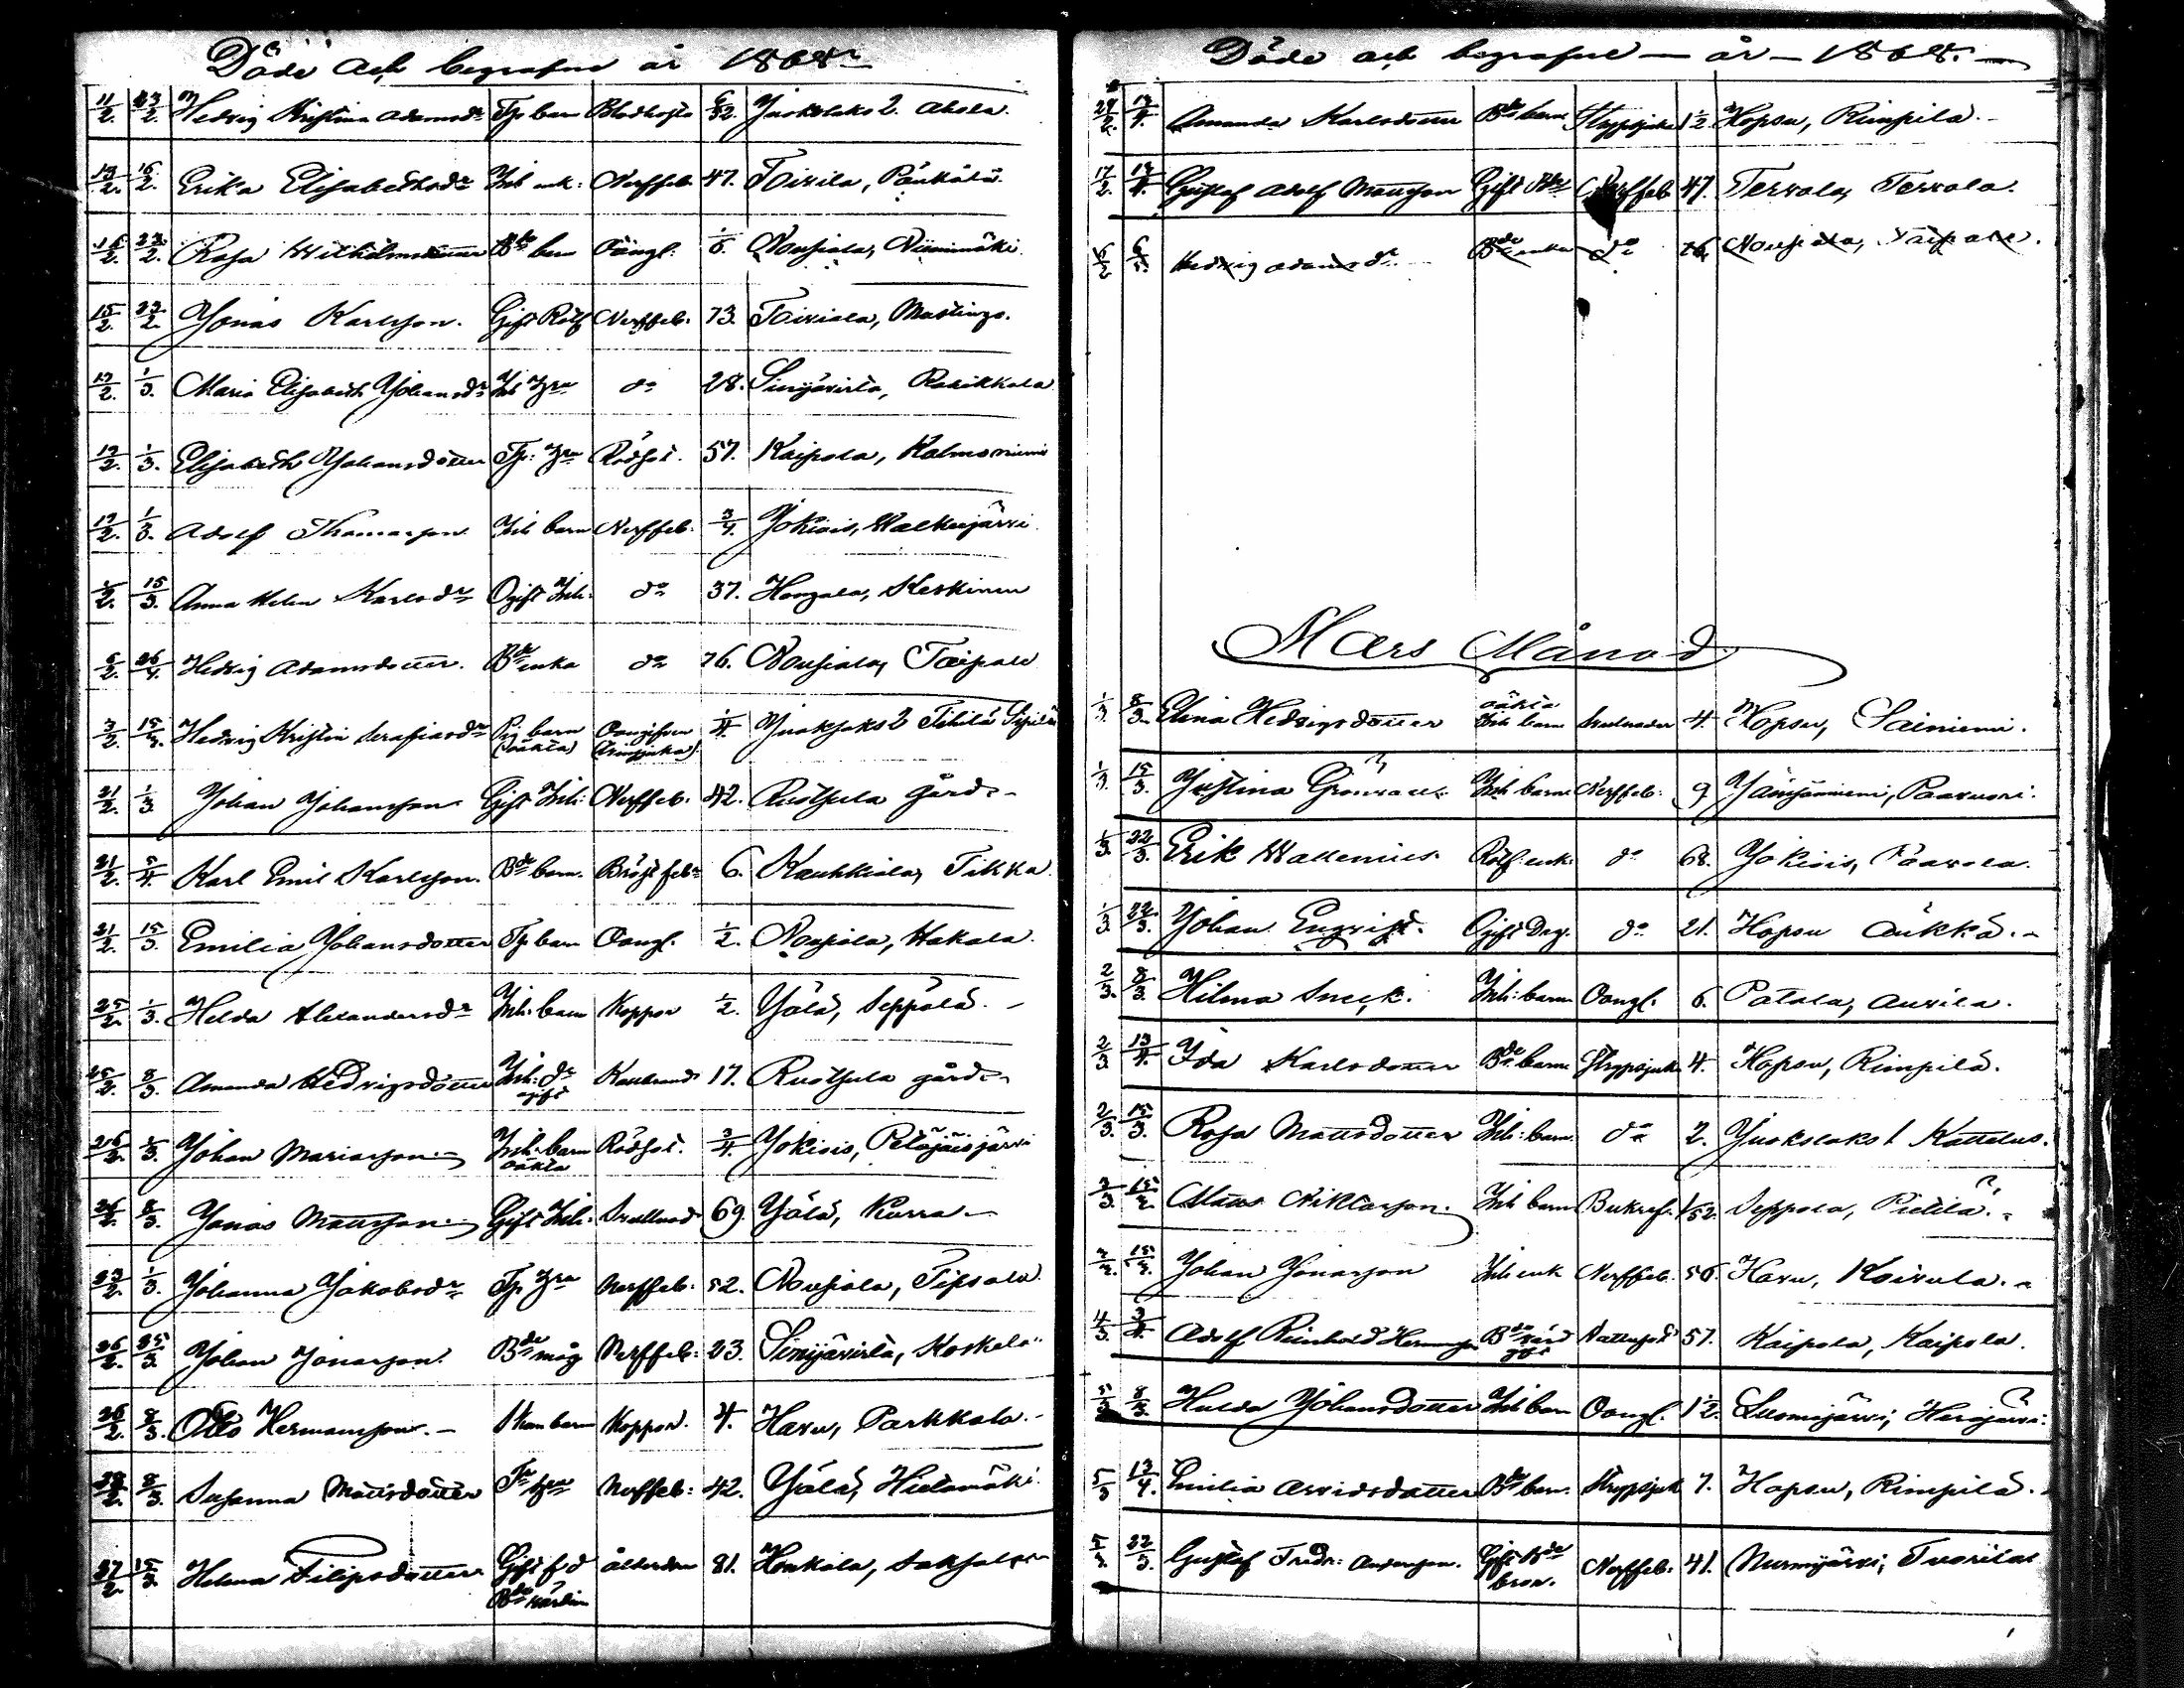 Döde och begrafne år 1868
11/2. 23/2. Hedvig Kristina Adamsdr Tp barn Blodhosta 6/52. Juokslaks 2. Ahola.
13/2. 16/2. Erika Elisabethsdr Inh enk: Nerffeb. 47. Toivila,
16/2. 23/2. Rosa Wilhelmsdotter Bde barn Oangl: 1/6. Nousiala, Niinimäki
15/2. 23/2. Jonas Karlsson. Gift Rotf Nerffeb. 73. Toiviala, Mastinge.
17/2. 1/3. Maria Elisabeth Johansdr Inh hru do 28. Sinijärilä,
17/2. 1/3. Elisabeth Johansdotter Tp: hru Rödsot. 57. Kaipola, Kalmoniemi
17/2. 1/3. Adolf Thomasson Inh barn Nerffeb. 3/4. Jokiois, Walkeejärvi.
15/3. Anna Helen Karlsdr Ogift Inh: do 37. Hongola, Keskinen
5/2. 26/4. Hedvig Adamsdotter. Bde enka do 76. Nousiala, Taipale
3/2. 15/3. Hedvig Kristin Serafiasdr Pig barn (oäkta) Oangifven 1/4. Juoksjoks 2
21/2. 1/3 Johan Johansson Gift Inh: Nerffeb. 42. Rusthula gård.-
21/2. 5/4. Karl Emil Karlsson. Bde barn. Bröstfeb: 6. Kaukkiala, Tikka.
21/2. 15/3. Emilia Johansdotter Tp barn Oangl. 1/2. Nousiala, Hakala.
25/2. 1/3. Helda Alexandersdr Inh: barn Koppor 1/2. Jälä, Seppälä.-
25/2. 8/3. Amanda Hedvigsdotter Inh: dr ogift Kallbrand 17. Rusthula gård.-
26/2. 1/3. Johan Mariasson Inh: barn oäkta Rödsot. 3/4. Jokiois, Petäjäisjärvi
26/2. 8/3. Jonas Mattsson Gift Inh: Svullnad 69. Jälä, Kurra
23/2. 1/3. Johanna Jakobsdr Tp hru Nerffeb: 52. Nousiala,
26/2. 25/3 Johan Jonasson. Bde måg Nerffeb: 23. Sinijärilä, Koskela
26/2. 8/3. Otto Hermansson. Koppor. 4. Haru, Parkkola.
28/2. 8/3. Susanna Mattsdotter Tp hru Nerffeb: 42. Jälä, Hietamäki
27/2. 15/3. Helena Filipsdotter Gift f.d Bde värdin ålderdom 81. Honkola,
Döde och begrafne år 1868.
12/4. Amanda Karlsdotter Bde barn Strypsjuka 1 1/2. Hopsu, Rimpilä.-
17/2. 12/4. Gustaf Adolf Mattsson Gift Bde Nerffeb 47. Tervala, Tervala.
5/2 Hedvig Adamsdr Bde enka do 76 Nousiala, Taipale.
Mars Månad
1/3 8/3. Elina Hedvigsdotter oäkta Inh barn Svulnader 4. Hopsu, Sainiemi.
1/3. 15/3. Justina Grönroos Inh barn Nerffeb: 9 Jämsänniemi, Paavuori.
1/3. 22/3. Erik Wallenius. Rotf: enk: do 68. Jokiois, Paavola.
1/3 22/3. Johan Engvist. Ogift Drg. do 21. Hopsu Aukkä.-
2/3. 8/3. Hilma Smeck. Inh: barn Oangl. 6. Patala, Auvila.
2/3 13/4. Ida Karlsdotter Bde barn Strypsjuk 4. Hopsu, Rimpilä.
2/3. 15/3. Rosa Mattsdotter Inh: barn. do 2. Juokslaks 1 Kattelus.
3/3. 15/3. Niklasson. Inh barn 1/52. Seppola, Pietilä.
15/3. Johan Jonasson Inh enk Nerffeb. 56. Haru, Koivula.
4/3. Adolf Reinhold Bde värd gift Vattusot 57. Kaipola, Kaipola.
5/3 8/3. Hulda Johansdotter Inh barn Oangl. 1 1/2. Luomijärvi, Herajärvi:
5/3 13/4. Emilia Arvidsdotter Bde barn. Strypsjuk 7. Hopsu, Rimpilä.
5/3. 22/3. Gustaf Fredr: Andersson. Gift Bde bror. Nerffeb: 41. Nurmijärvi, Tuorila